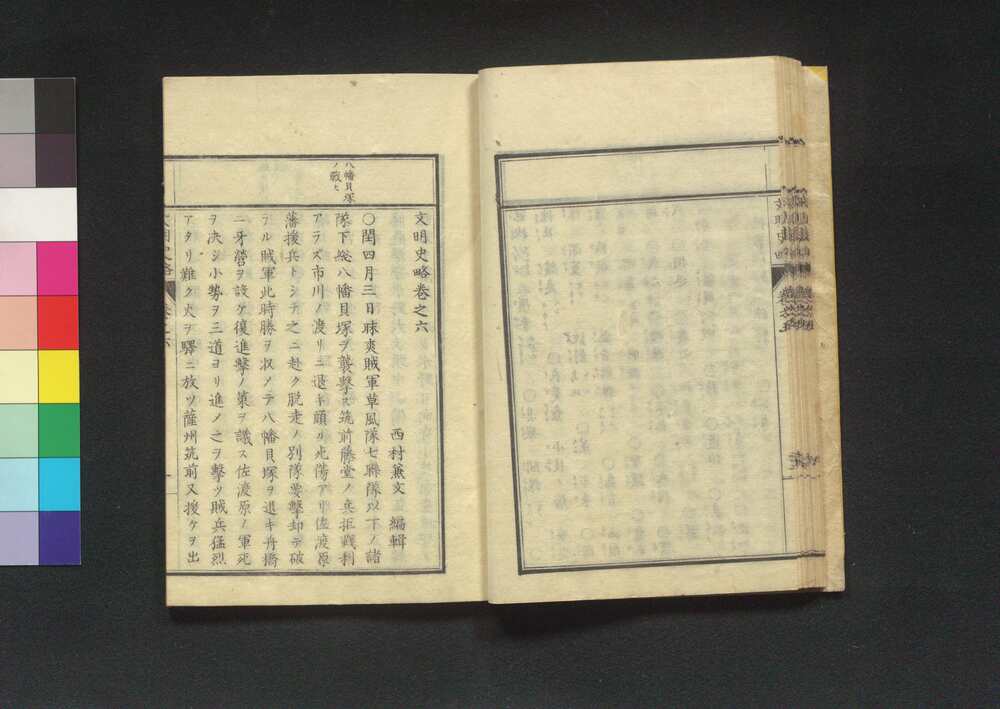 文明史略巻之六
西村蒹文 編輯
〇閏四月三日昧爽賊軍草風隊七聯隊以下ノ諸
隊下総八幡貝塚ヲ襲撃ス筑前藤堂ノ兵拒戦利
アラス市川ノ渡リニ退キ頗ル死傷アリ佐渡原
藩援兵トシテ之ニ赴ク脱走ノ別隊要撃却テ破
ラル賊軍此時勝ヲ収メテ八幡貝塚ヲ退キ舟橋
ニ牙営ヲ設ケ復進撃ノ策ヲ議ス佐渡原ノ軍死
ヲ决シ小勢ヲ三道ヨリ進ノ之ヲ撃ツ賊兵猛烈
アタリ難ク火ヲ驛ニ放ツ薩州筑前又援ケヲ出
八幡貝塚
ノ戰ヒ